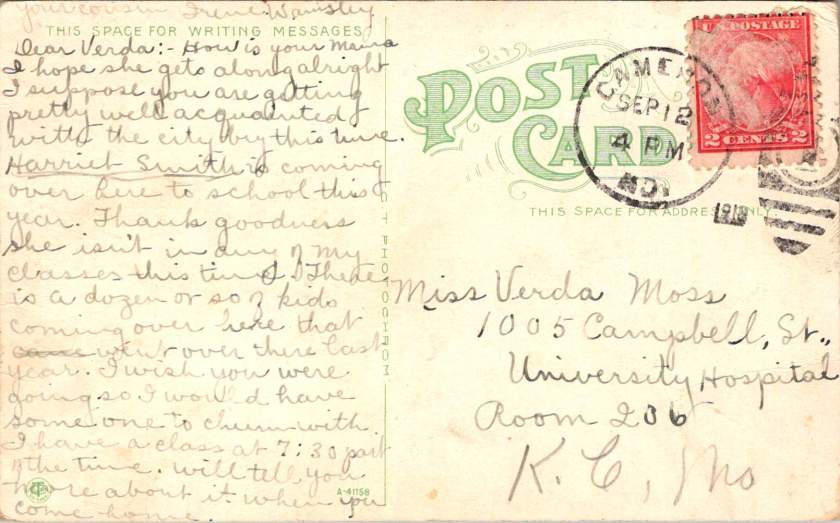 your cousin Irene Wamsley
THIS SPACE FOR WRITING MESSAGES
Dear Verda:- How is your Mama
I hope she gets along alright
I suppose you are getting
pretty well acquainted
with the city by this time.
Harriet Smith is coming
over here to school this
year. Thank goodness
she isn't in any of my
classes this time. There
is a dozen or so of kids
coming over here that
came went over there last
year. I wish you were
going so I would have
some one to chum with
I have a class at 7:30 part
of the time. will tell you
more about it when you
come home.
A-41158
PHOTOCHROM
POST
CARD
THIS SPACE FOR ADDRESS ONLY.
CAMERON
SEP 12
4 PM
MO.
U.S. POSTAGE
2 CENTS 2
Miss Verda Moss
1005 Campbell, St.,
University Hospital
Room 206
K. C., Mo